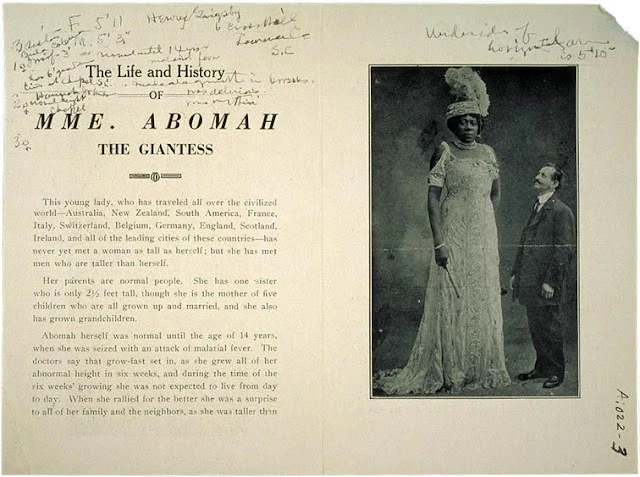 F. 5'11
S.C
Underside of
horizontal arm
is 5'10"
The Life and History
OF
MME. ABOMAH
THE GIANTESS
This young lady, who has traveled all over the civilized
world—Australia, New Zealand, South America, France,
Italy, Switzerland, Belgium, Germany, England, Scotland,
Ireland, and all of the leading cities of these countries—has
never yet met a woman as tall as herself; but she has met
men who are taller than herself.
Her parents are normal people. She has one sister
who is only 2½ feet tall, though she is the mother of five
children who are all grown up and married, and she also
has grown grandchildren.
Abomah herself was normal until the age of 14 years,
when she was seized with an attack of malatial fever. The
doctors say that grow-fast set in, as she grew all of her
abnormal height in six weeks, and during the time of the
six weeks' growing she was not expected to live from day
to day. When she rallied for the better she was a surprise
to all of her family and the neighbors, as she was taller than
A;022-3